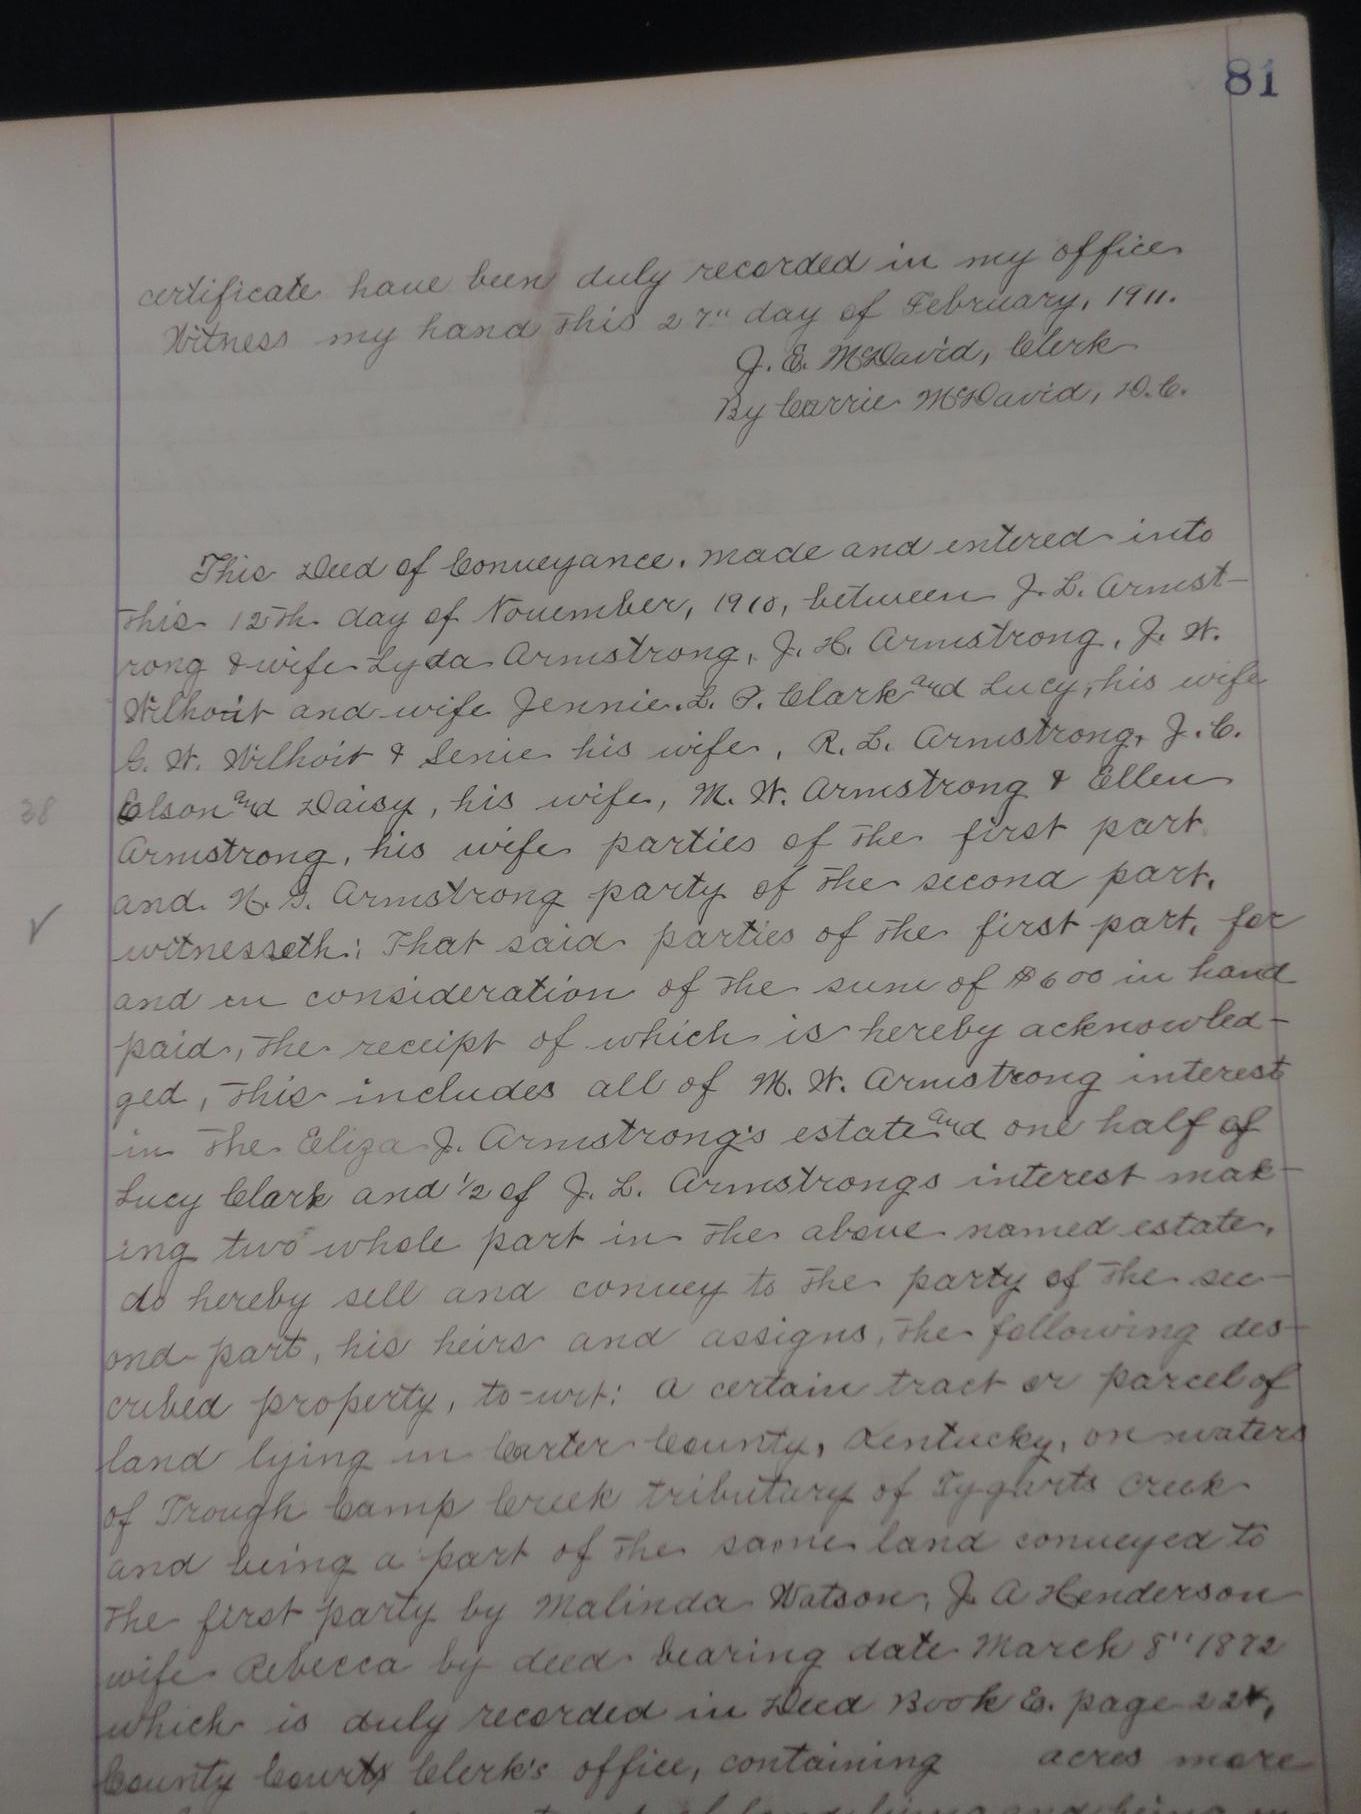 81
certificate have been duly recorded in my office
Witness my hand this 27" day of February, 1911.
J. E. McDavid, Clerk
By Carrie McDavid, D.C.
This Deed of Conveyance, made and entered into
this 12th day of November, 1910, between J. L. Armst-
rong & wife Lyda Armstrong, J. H. Armstrong, J. W.
Wilhoit and wife Jennie. L. P. Clark and Lucy, his wife
G. W. Wilhoit & Senie his wife, R. L. Armstrong, J. C.
Elson and Daisy, his wife, M. W. Armstrong & Ellen
38
Armstrong, his wife parties of the first part
and. H. G. Armstrong party of the second part,
✓
witnesseth: That said parties of the first part, for
and in consideration of the sum of $600 in hand
paid, the receipt of which is hereby acknowled-
ged, this includes all of M. W. Armstrong interest
in the Eliza J. Armstrong's estate and one half of
Lucy Clark and 1/2 of J. L. Armstrongs interest mak-
ing two whole part in the above named estate,
do hereby sell and convey to the party of the sec-
ond part, his heirs and assigns, the following des-
cribed property, to-wit: A certain tract or parcel of
land lying in Carter County, Kentucky, on waters
of Trough Camp Creek tributary of Tygarts Creek
and being a part of the same land conveyed to
the first party by Malinda Watson, J. A Henderson
wife Rebecca by deed bearing date March 8" 1872
which is duly recorded in Deed Book E. page 224,
County Courts Clerk's office, containing acres more